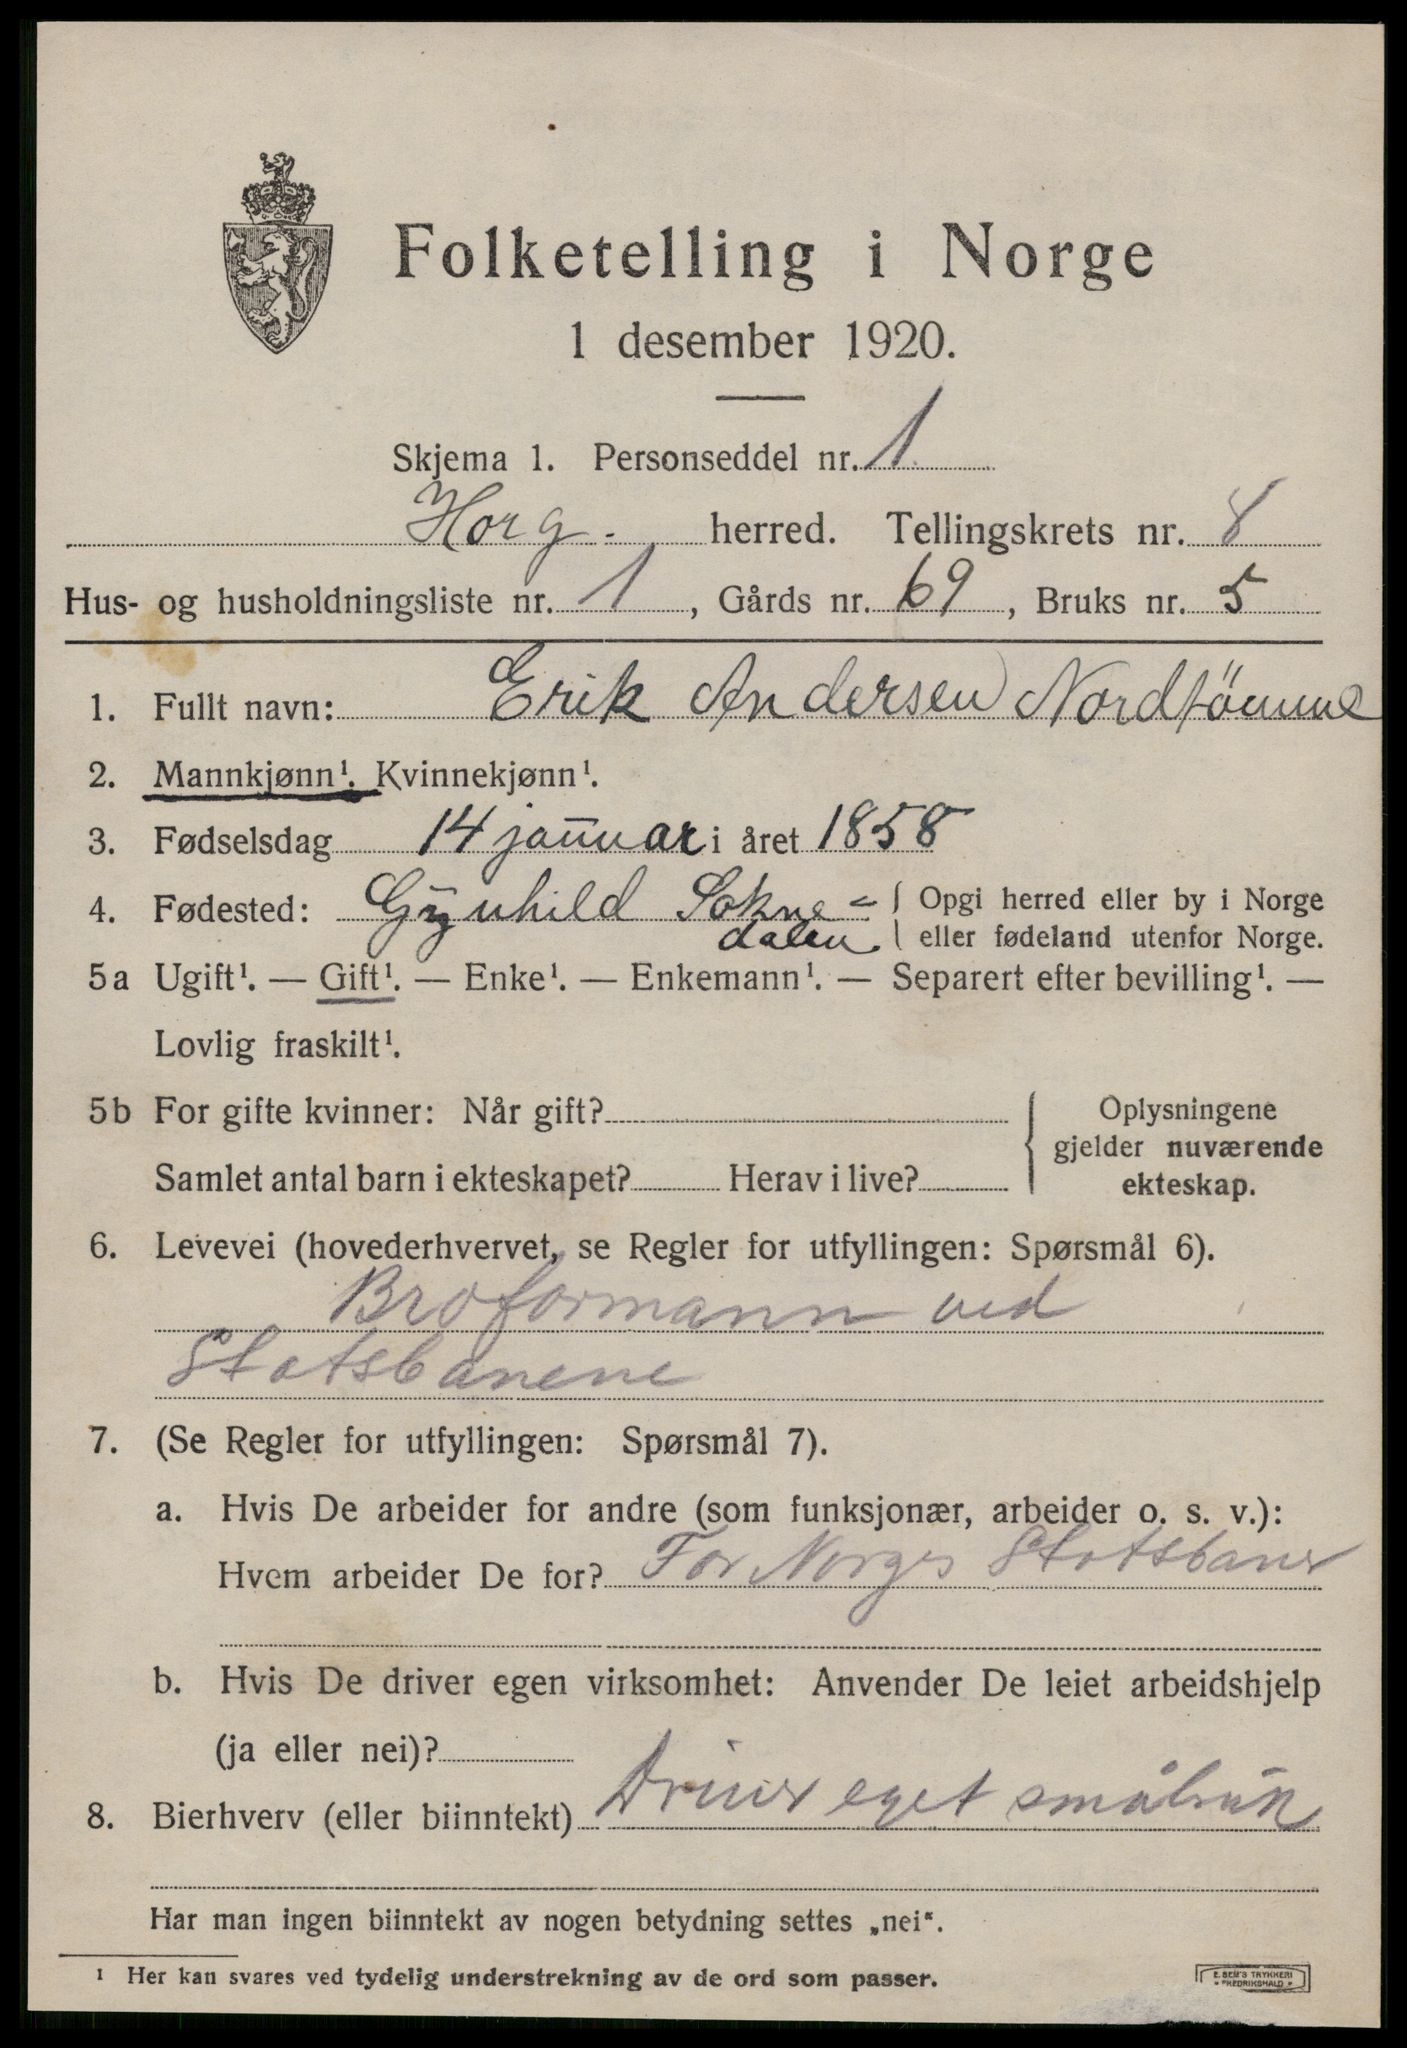 Folketelling i Norge
1 desember 1920.
Skjema 1. Personseddel nr. 1
Horg. herred. Tellingskrets nr. 8
Hus- og husholdningsliste nr. 1, Gårds nr. 69, Bruks nr. 5
1. Fullt navn: Erik Andersen Nordtömme
2. Mannkjønn¹. Kvinnekjønn¹.
3. Fødselsdag 14 januar i året 1858
4. Fødested: Sokne= { Opgi herred eller by i Norge
dalen. eller fødeland utenfor Norge.
5a Ugift¹. — Gift¹. — Enke¹. — Enkemann¹. — Separert efter bevilling¹. —
Lovlig fraskilt¹.
5b For gifte kvinner: Når gift? Oplysningene
gjelder nuværende
Samlet antal barn i ekteskapet? Herav i live? ekteskap.
6. Levevei (hovederhvervet, se Regler for utfyllingen: Spørsmål 6).
Broformann ved
Statsbanene
7. (Se Regler for utfyllingen: Spørsmål 7).
a. Hvis De arbeider for andre (som funksjonær, arbeider o. s. v.):
Hvem arbeider De for? For Norges Statsbaner
b. Hvis De driver egen virksomhet: Anvender De leiet arbeidshjelp
(ja eller nei)?
8. Bierhverv (eller biinntekt) Driver eget småbruk
Har man ingen biinntekt av nogen betydning settes „nei".
¹ Her kan svares ved tydelig understrekning av de ord som passer.
E. SEM'S TRYKKERI
FREDRIKSHALD